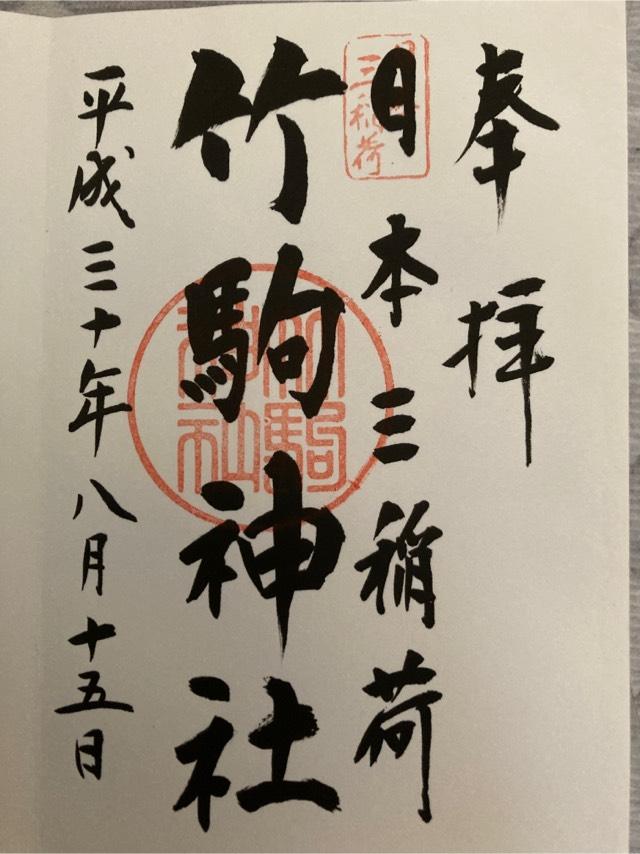 奉拝
日本三稲荷
三稲荷
竹駒神社
竹駒神社
平成三十年八月十五日